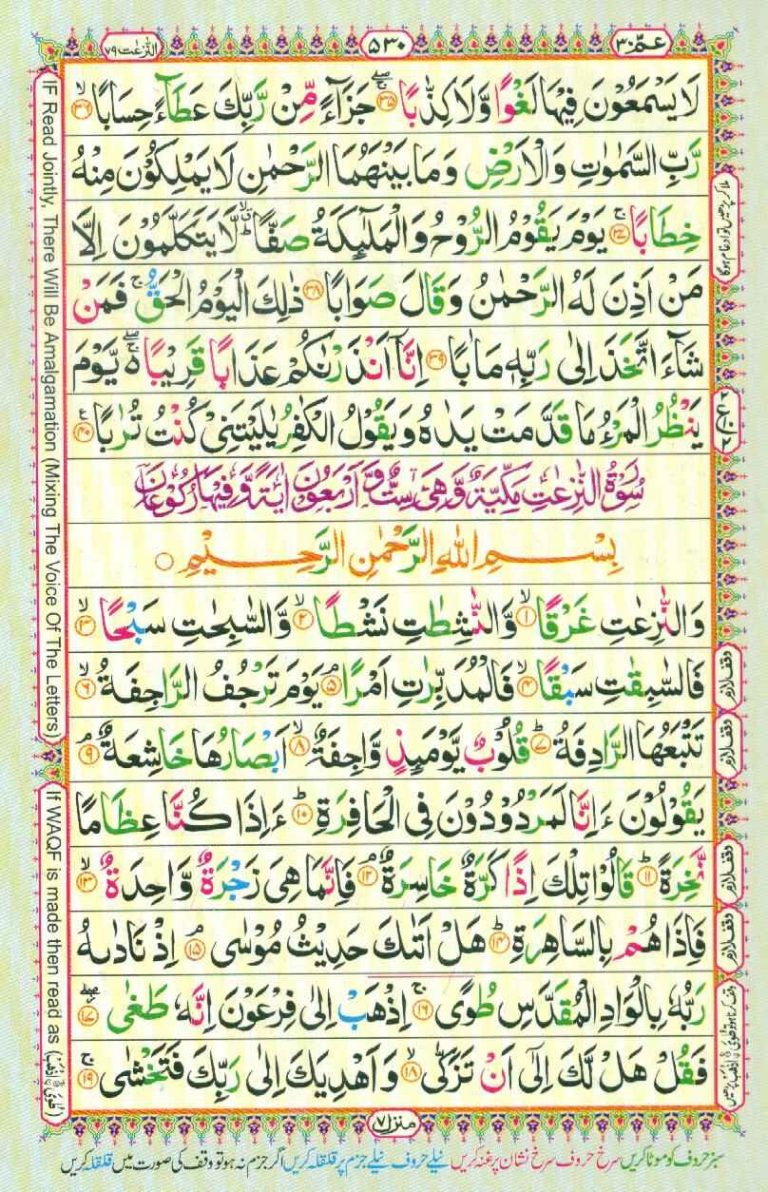 عمّ ٣٠
٥٣٠
النّٰزعٰت ٧٩
لَا يَسْمَعُوْنَ فِيْهَا لَغْوًا وَّلَا كِذّٰبًا ۝٣٥ۚ جَزَآءً مِّنْ رَّبِّكَ عَطَآءً حِسَابًا ۝٣٦ۙ
رَّبِّ السَّمٰوٰتِ وَالْاَرْضِ وَمَا بَيْنَهُمَا الرَّحْمٰنِ لَا يَمْلِكُوْنَ مِنْهُ
خِطَابًا ۝٣٧ۚ يَوْمَ يَقُوْمُ الرُّوْحُ وَالْمَلٰٓئِكَةُ صَفًّا ۙؕ لَّا يَتَكَلَّمُوْنَ اِلَّا
مَنْ اَذِنَ لَهُ الرَّحْمٰنُ وَقَالَ صَوَابًا ۝٣٨ ذٰلِكَ الْيَوْمُ الْحَقُّ ۚ فَمَنْ
شَآءَ اتَّخَذَ اِلٰى رَبِّهٖ مَاٰبًا ۝٣٩ اِنَّآ اَنْذَرْنٰكُمْ عَذَابًا قَرِيْبًا ۚۖ۬ يَّوْمَ
يَنْظُرُ الْمَرْءُ مَا قَدَّمَتْ يَدٰهُ وَيَقُوْلُ الْكٰفِرُ يٰلَيْتَنِيْ كُنْتُ تُرٰبًا ۝٤٠ۧ
سُوْرَةُ النّٰزِعٰتِ مَكِّيَّةٌ وَّهِيَ سِتٌّ وَّاَرْبَعُوْنَ اٰيَةً وَّفِيْهَا رُكُوْعَانِ
بِسْمِ اللّٰهِ الرَّحْمٰنِ الرَّحِيْمِ ۝
وَالنّٰزِعٰتِ غَرْقًا ۝١ۙ وَّالنّٰشِطٰتِ نَشْطًا ۝٢ۙ وَّالسّٰبِحٰتِ سَبْحًا ۝٣ۙ
فَالسّٰبِقٰتِ سَبْقًا ۝٤ۙ فَالْمُدَبِّرٰتِ اَمْرًا ۝٥ۘ يَوْمَ تَرْجُفُ الرَّاجِفَةُ ۝٦ۙ
تَتْبَعُهَا الرَّادِفَةُ ۝٧ؕ قُلُوْبٌ يَّوْمَئِذٍ وَّاجِفَةٌ ۝٨ۙ اَبْصَارُهَا خَاشِعَةٌ ۝٩ۘ
يَقُوْلُوْنَ ءَاِنَّا لَمَرْدُوْدُوْنَ فِي الْحَافِرَةِ ۝١٠ؕ ءَاِذَا كُنَّا عِظَامًا
نَّخِرَةً ۝١١ؕ قَالُوْا تِلْكَ اِذًا كَرَّةٌ خَاسِرَةٌ ۝١٢ۘ فَاِنَّمَا هِيَ زَجْرَةٌ وَّاحِدَةٌ ۝١٣ۙ
فَاِذَا هُمْ بِالسَّاهِرَةِ ۝١٤ؕ هَلْ اَتٰىكَ حَدِيْثُ مُوْسٰى ۝١٥ۘ اِذْ نَادٰىهُ
رَبُّهٗ بِالْوَادِ الْمُقَدَّسِ طُوًى ۝١٦ۚ اِذْهَبْ اِلٰى فِرْعَوْنَ اِنَّهٗ طَغٰى ۝١٧ۖ
فَقُلْ هَلْ لَّكَ اِلٰٓى اَنْ تَزَكّٰى ۝١٨ۙ وَاَهْدِيَكَ اِلٰى رَبِّكَ فَتَخْشٰى ۝١٩ۚ
وقف لازم
وقف لازم
وقف لازم
وقف لازم
IF Read Jointly, There Will Be Amalgamation (Mixing The Voice Of The Letters)
If WAQF is made then read as (طُوًى ۝ اِذْهَبْ)
منزل ٧
سبز حروف کو موٹا کریں سرخ حروف سرخ نشان پر غنہ کریں نیلے حروف نیلے جزم پر قلقلہ کریں اگر جزم نہ ہو تو وقف کی صورت میں قلقلہ کریں